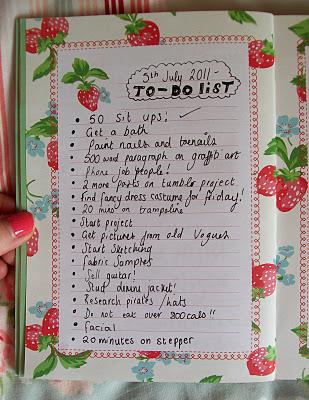 5th July 2011 -
TO-DO LIST
• 50 sit ups! ✓
• Get a bath
• Paint nails and toenails
• 500 word paragraph on graffiti art
• Phone job people!
• 2 more posts on tumblr project
• Find fancy dress costume for friday!
• 20 mins on trampoline
• Start project
• Get pictures from old Vogues
• Start sketching
• Fabric Samples
• Sell guitar!
• Stud denim jacket!
• Research pirates / hats
• Do not eat over 800 cals!!
• Facial
• 20 minutes on stepper